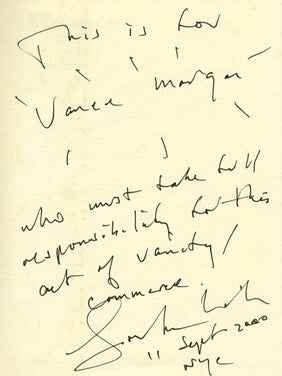 This is for
"Vance Morgan"
who must take full
responsibility for this
act of vanity/
commerce.
11 Sept 2000
NYC